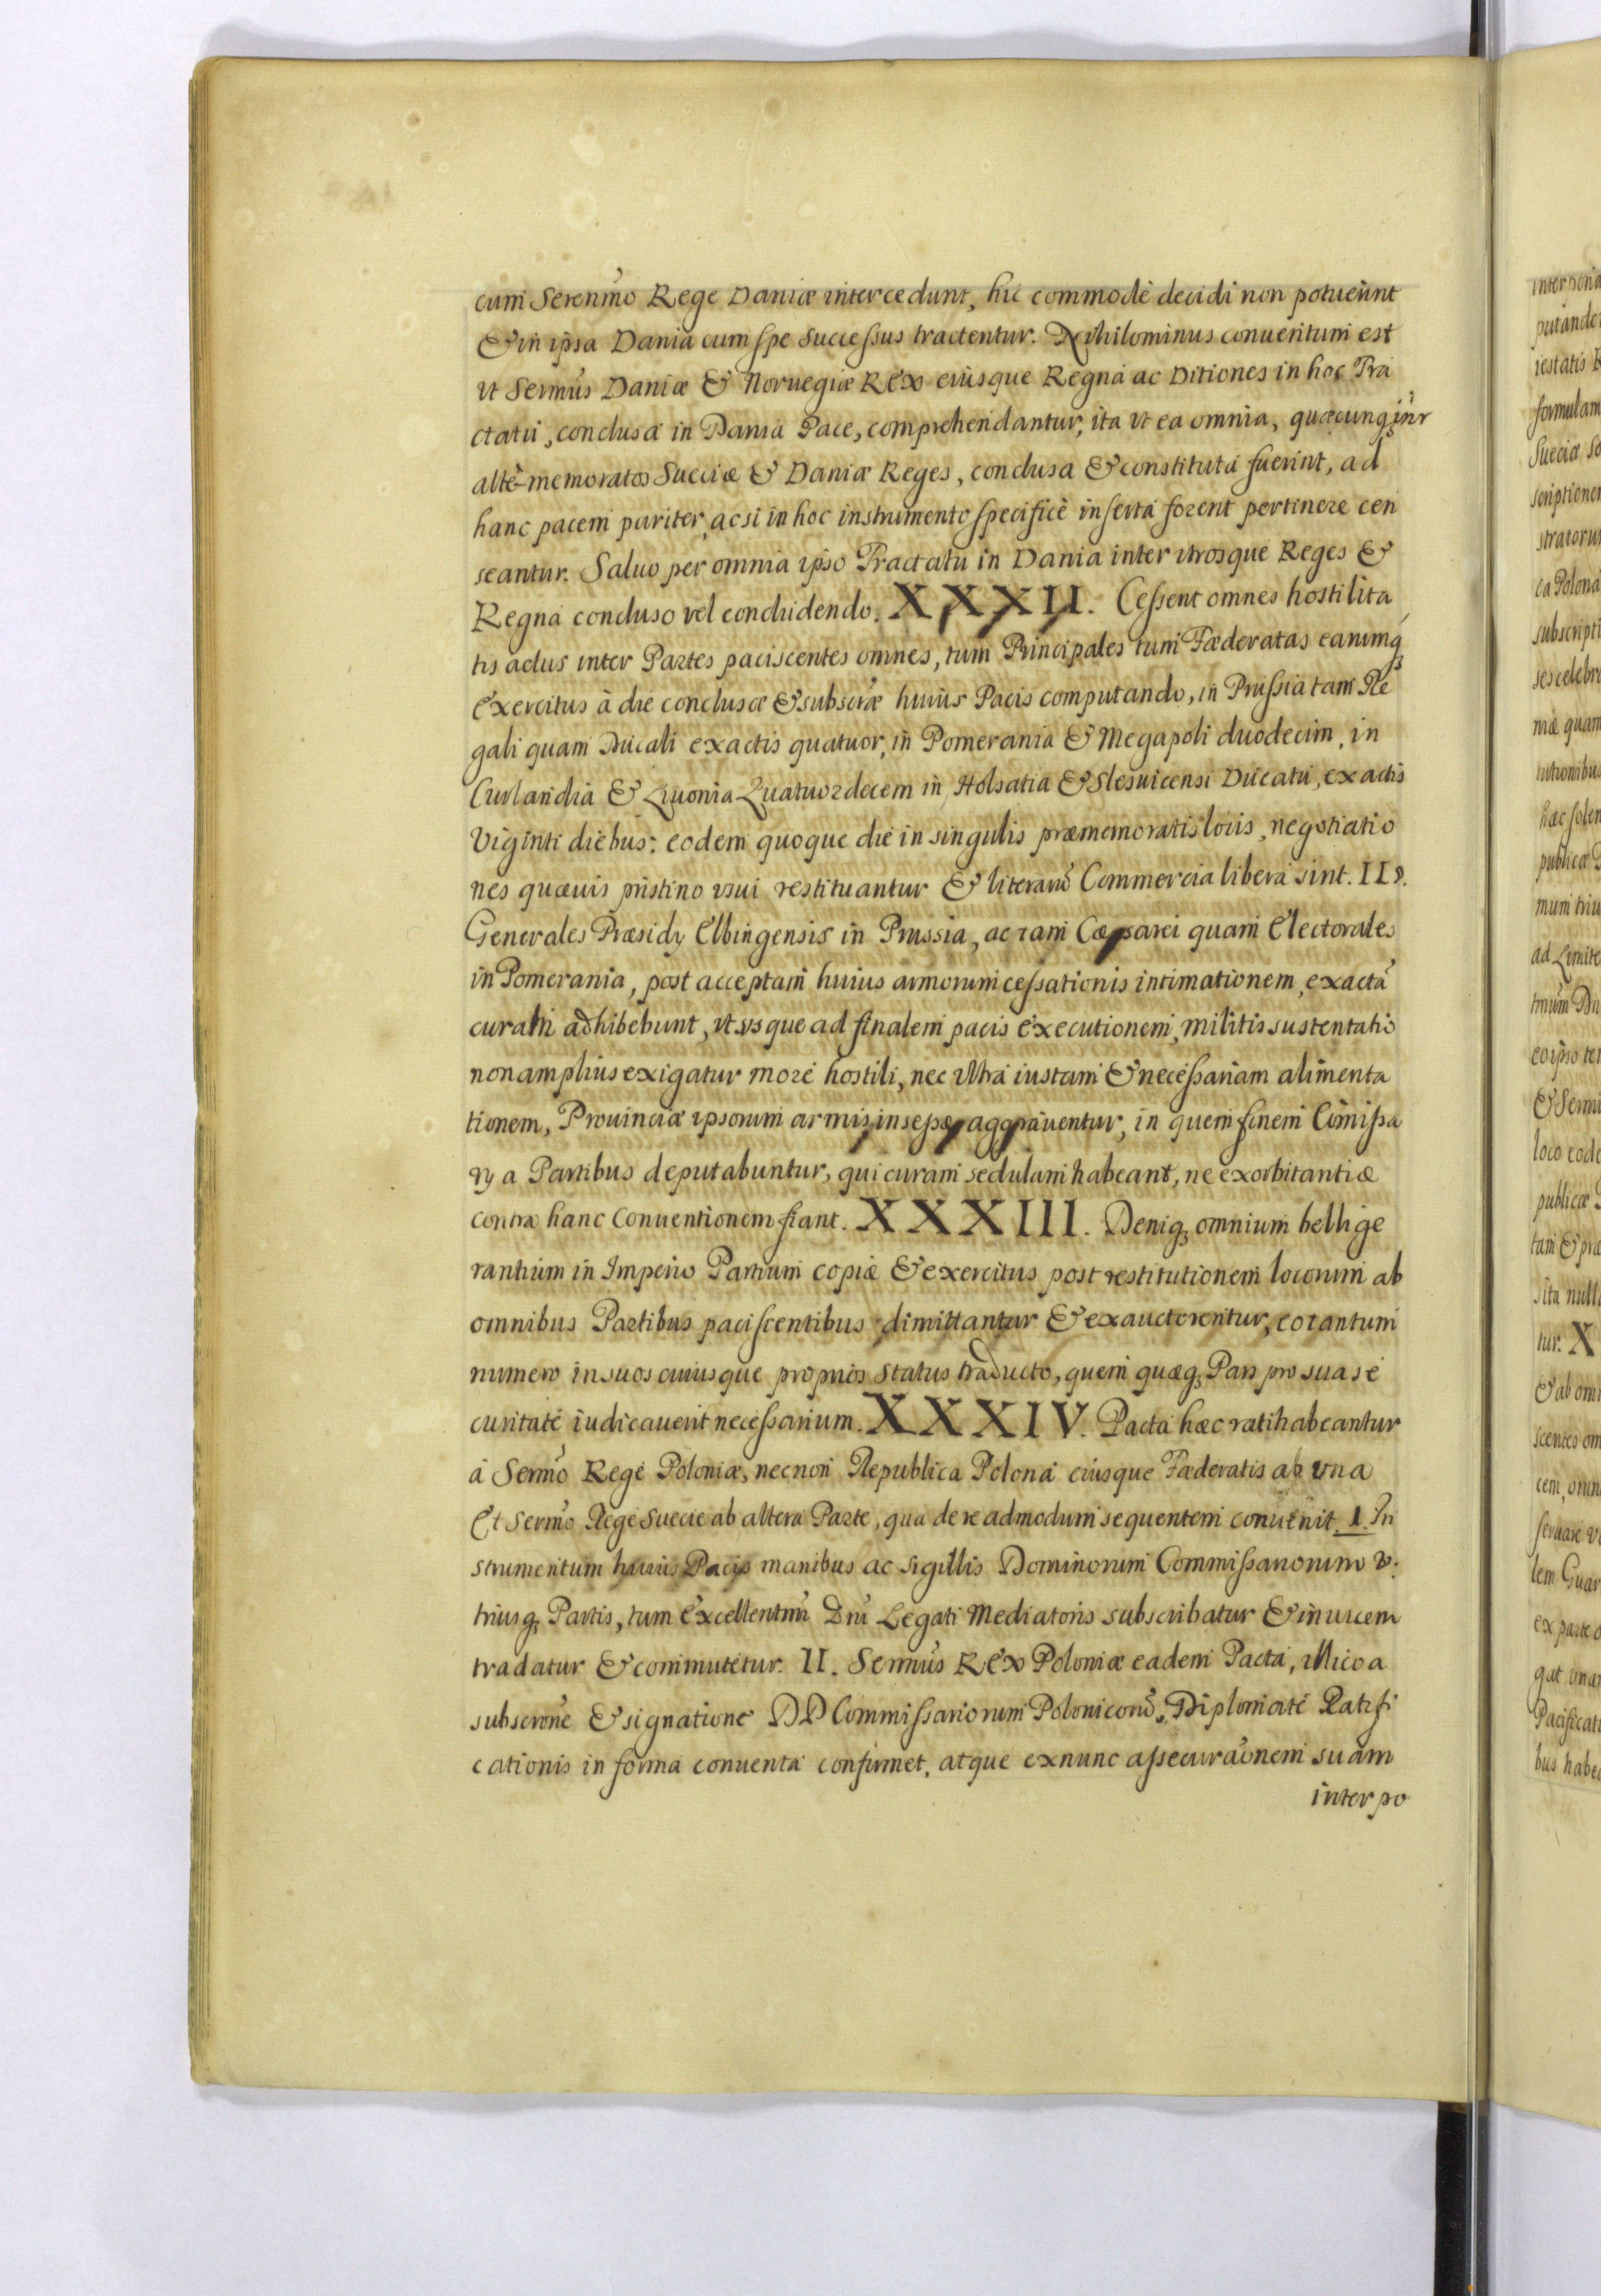 cum Serenmo Rege Daniæ intercedunt, hic commodè decidi non potuerint
& in ipsa Dania cum spe Successus tractentur. Nihilominus conuentum est
vt Sermus Daniæ & Noruegiæ REX eiusque Regna ac Ditiones in hoc Tra
ctatu, conclusa in Dania Pace, comprehendantur, ita vt ea omnia, quæcunq; intr
altè-memoratos Sueciæ & Daniæ Reges, conclusa & constituta fuerint, ad
hanc pacem pariter, ac si in hoc instrumento specificè inserta forent pertinere cen
seantur. Saluo per omnia ipso Tractatu in Dania inter vtrosque Reges &
Regna concluso vel concludendo. XXXII. Cessent omnes hostilita
tis actus inter Partes paciscentes omnes, tum Principales tum Fæderatas earumq;
Exercitus à die conclusæ & subscræ huius Pacis computando, in Prussia tam Re
gali quam Ducali exactis quatuor, in Pomerania & Megapoli duodecim, in
Curlandia & Liuonia Quatuordecem in Holsatia & Slesuicensi Ducatu, exactis
Viginti diebus: eodem quoque die in singulis præmemoratis locis, negotiatio
nes quæuis pristino vsui restituantur & literarũ Commercia libera sint. II⁹.
Generales Præsidy Elbingensis in Prussia, ac tam Cæsarei quam Electorales
in Pomerania, post acceptam huius armorum cessationis intimationem, exactã
curam adhibebunt, vt vsque ad finalem pacis executionem, militis sustentatio
non amplius exigatur more hostili, nec vltra iustam & necessariam alimenta
tionem, Prouinciæ ipsorum armis insessæ aggrauentur, in quem finem Comissa
ry a Partibus deputabuntur, qui curam sedulam habeant, ne exorbitantiæ
contra hanc Conuentionem fiant. XXXIII. Deniq; omnium bellige
rantium in Imperio Partium copiæ & exercitus post restitutionem locorum ab
omnibus Partibus paciscentibus dimittantur & exauctorentur, eo tantum
numero in suos cuiusque proprios Status traducto, quem quæq; Pars pro sua se
curitate iudicauerit necessarium. XXXIV. Pacta hæc ratihabeantur
á Sermo Rege Poloniæ, nec non Republica Polona eiusque Fæderatis ab vna
Et Sermo Rege Sueciæ ab altera Parte, qua de re ad modum sequentem conuenit. I. In
strumentum huius Pacis manibus ac sigillis Dominorum Commissariorum v:
triusq; Partis, tum Excellentmi Dni Legati Mediatoris subscribatur & in uicem
tradatur & commutetur. II. Sermus REX Poloniæ eadem Pacta, illico a
subscrone & signatione DD Commissariorum Polonicorũ, Diplomate Ratifi
cationis in forma conuenta confirmet, atque exnunc assecuraonem suam
inter po